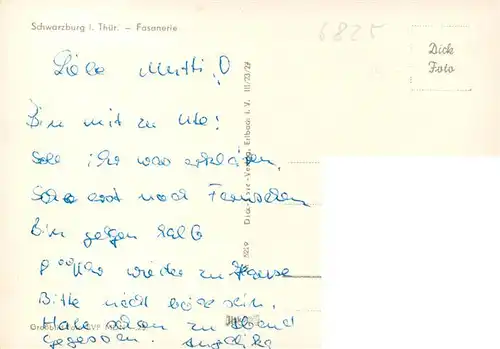 Schwarzburg i. Thür. – Fasanerie
6825
Dick
Foto
Liebe Mutti!
Bin mit zu Ute!
Soll ihr was erklären.
Sehe erst noch Fernsehen
Bin gegen halb
wieder zu Hause
Bitte nicht böse sein.
Habe schon zu Abend
gegessen. Angelika
Dick-Foto-Verlag, Erlbach i. V. III/23/27